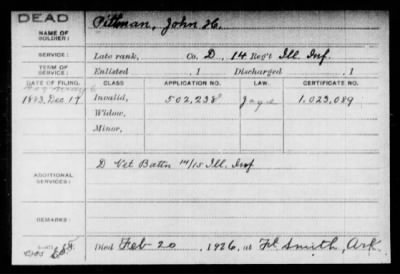 DEAD
NAME OF SOLDIER: Pittman, John H.
SERVICE: Late rank, Co. D, 14 Reg't Ill. Inf.
TERM OF SERVICE: Enlisted , 1 Discharged , 1
DATE OF FILING. CLASS APPLICATION NO. LAW. CERTIFICATE NO.
1883, Dec. 17 Invalid, 502,238 1,023,089
Widow,
Minor,
ADDITIONAL SERVICES: D Vet Battn 14/15 Ill. Inf
REMARKS:
Died Feb 20, 1926, at Ft. Smith, Ark.